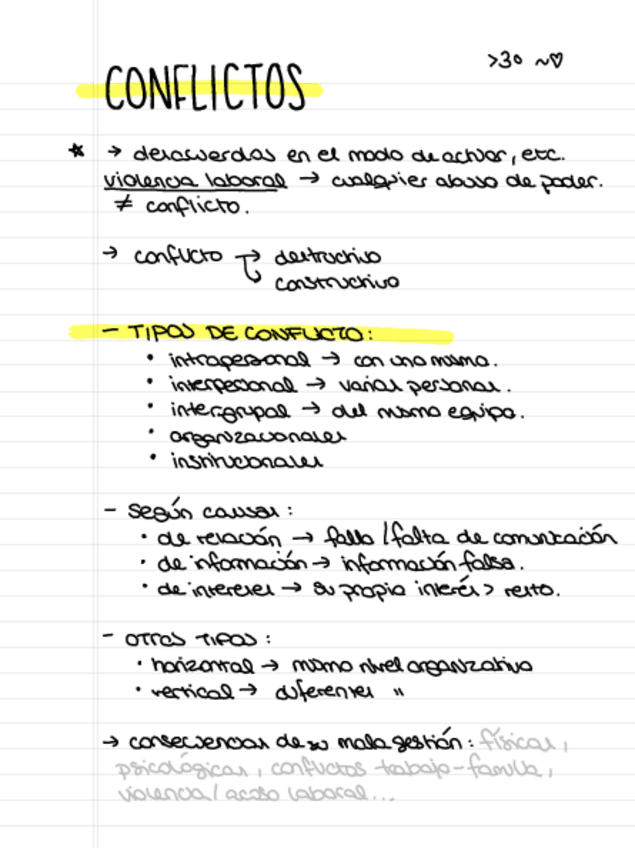 >30 ~♡
CONFLICTOS
* → desacuerdos en el modo de actuar, etc.
violencia laboral → cualquier abuso de poder.
≠ conflicto.
→ conflicto → destructivo
↳ constructivo
- TIPOS DE CONFLICTO:
• intrapersonal → con uno mismo.
• interpersonal → varias personas.
• intergrupal → del mismo equipo.
• organizacionales
• institucionales
- según causas:
• de relación → fallo / falta de comunicación
• de información → información falsa.
• de intereses → su propio interés > resto.
- OTROS TIPOS:
• horizontal → mismo nivel organizativo
• vertical → diferentes "
→ consecuencias de su mala gestión: físicas,
psicológicas, conflictos trabajo-familia,
violencia / acoso laboral...